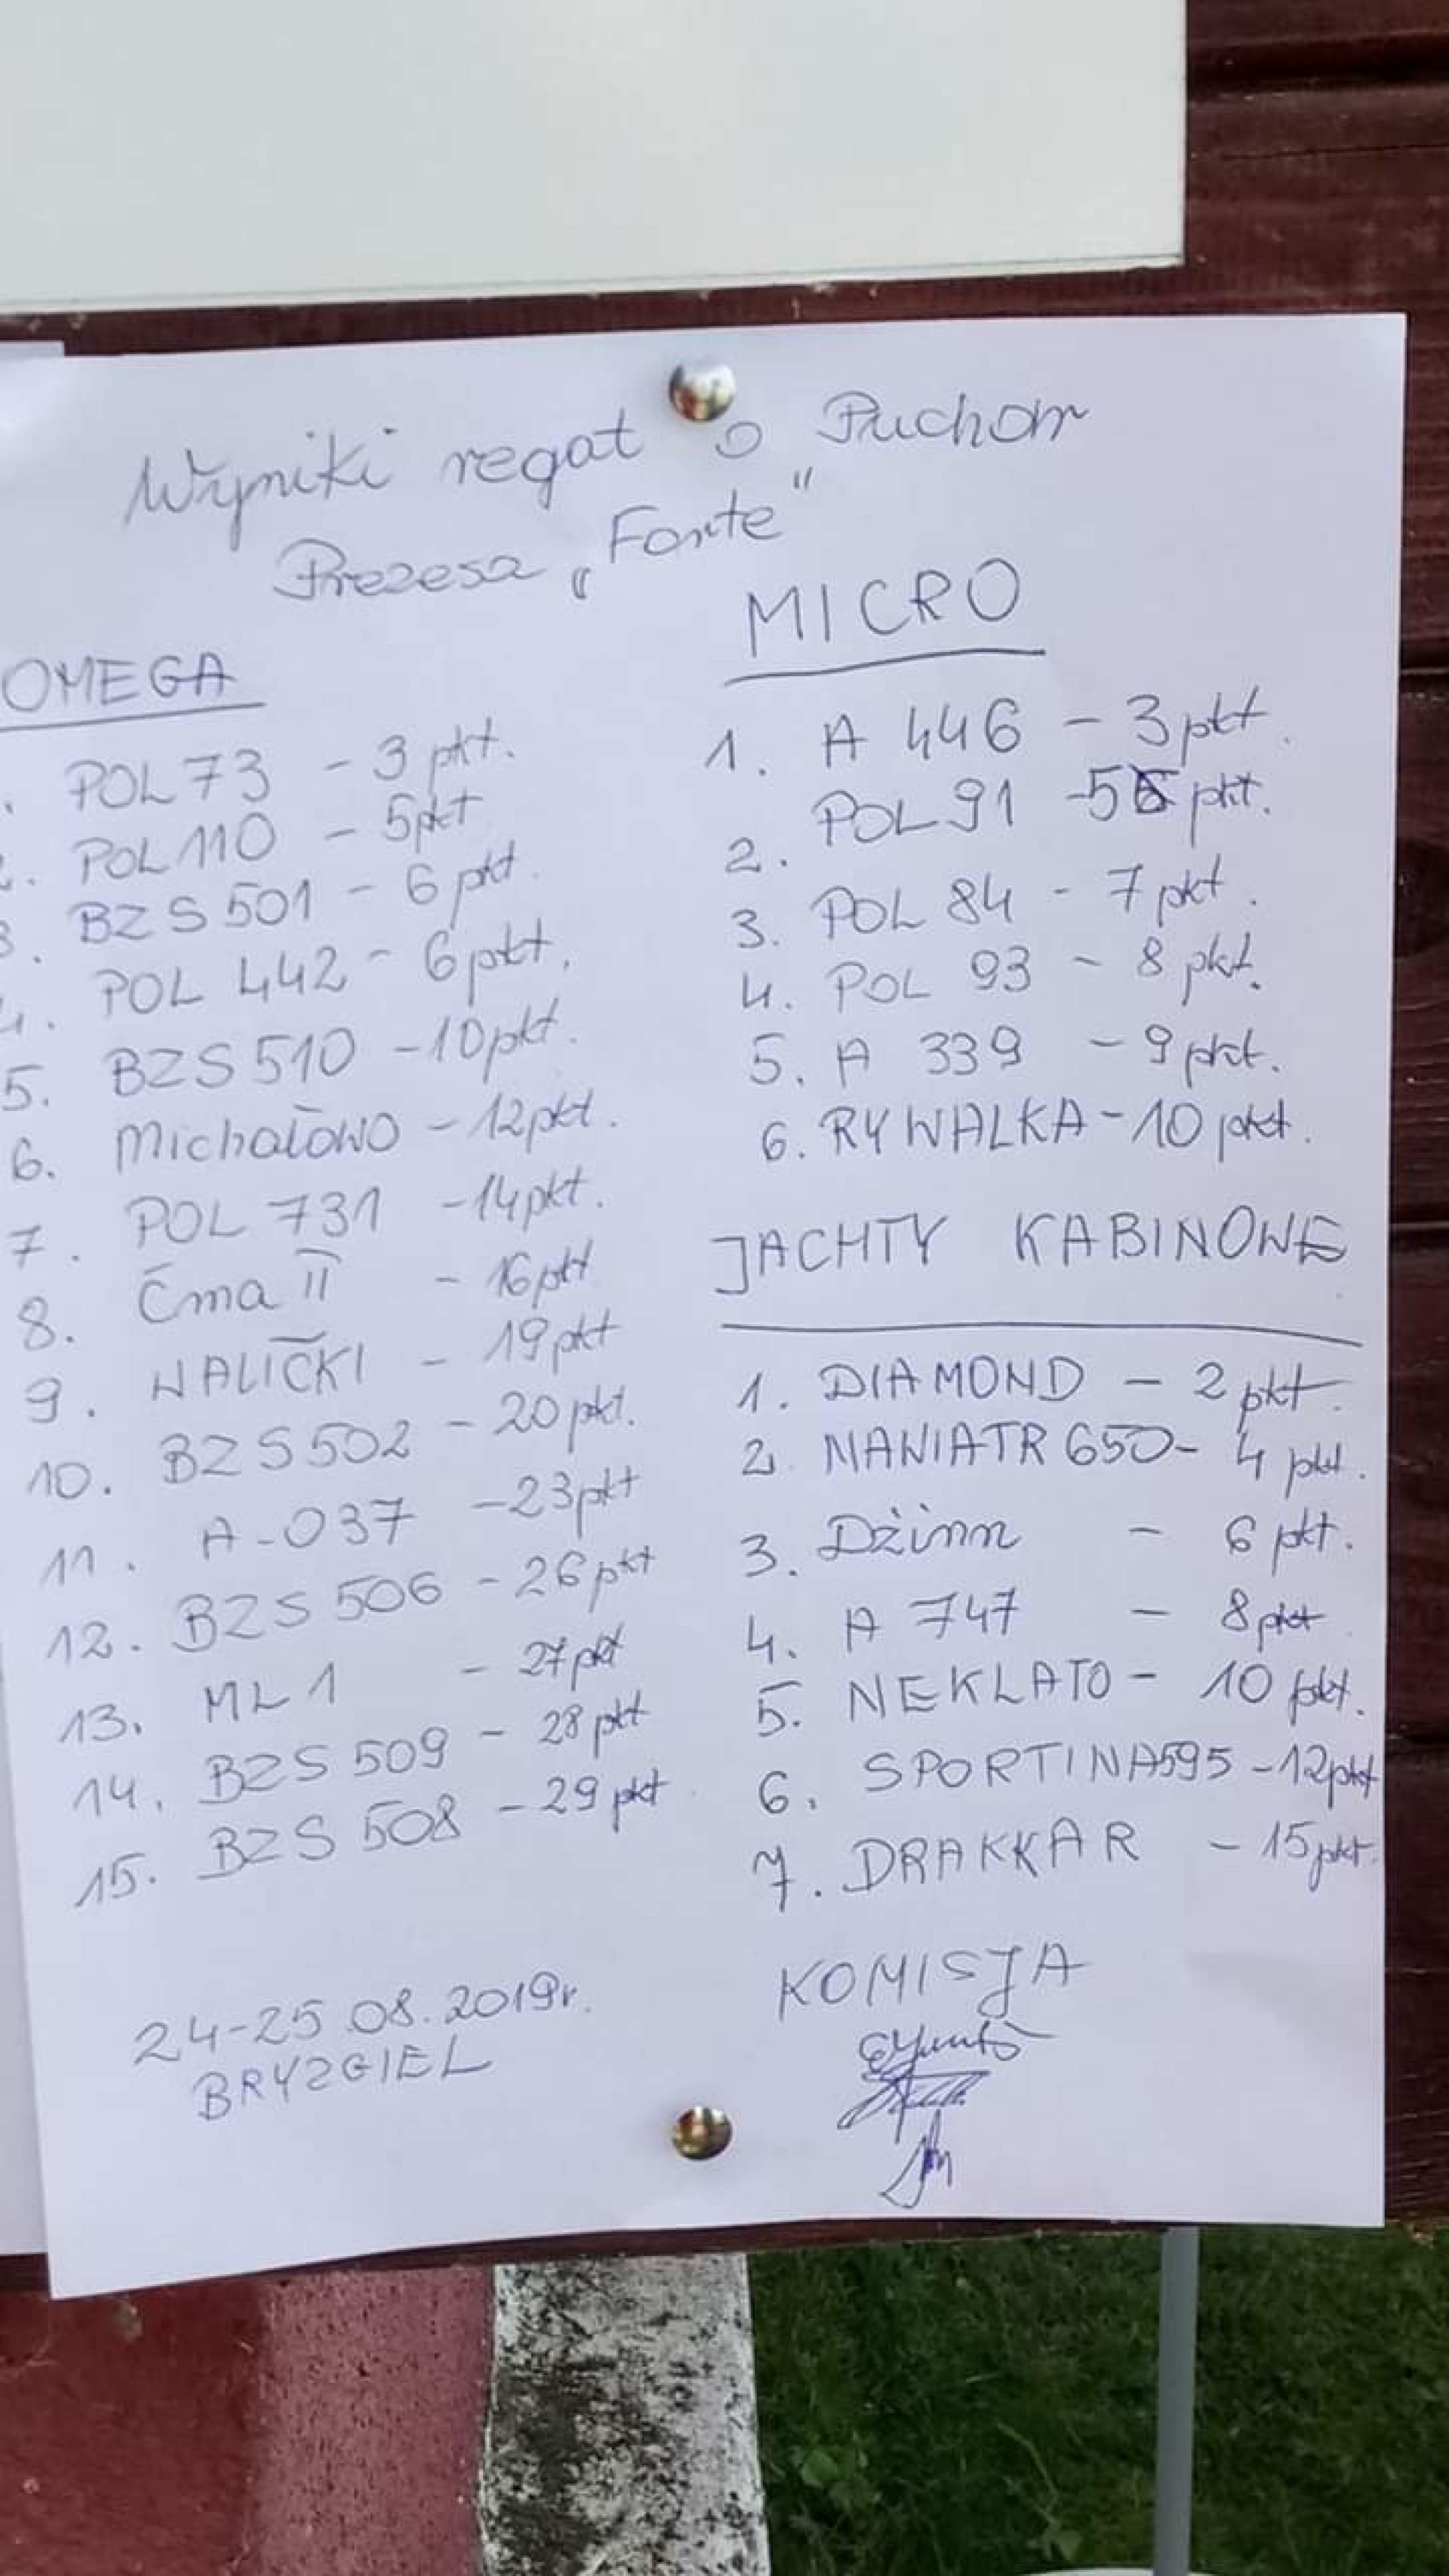 Wyniki regat o Puchar
Prezesa „Forte"
OMEGA
. POL 73 - 3 pkt.
2. POL 110 - 5pkt
3. BZS 501 - 6 pkt.
4. POL 442 - 6pkt.
5. BZS 510 - 10pkt.
6. Michałowo - 12pkt.
7. POL 731 - 14pkt.
8. Ćma II - 16pkt
9. WALICKI - 19pkt
10. BZS 502 - 20pkt.
11. A-037 - 23pkt
12. BZS 506 - 26pkt
13. ML 1 - 27pkt
14. BZS 509 - 28pkt
15. BZS 508 - 29pkt
24-25.08.2019r.
BRYZGIEL
MICRO
1. A 446 - 3pkt.
2. POL 91 - 5 pkt.
3. POL 84 - 7pkt.
4. POL 93 - 8 pkt.
5. A 339 - 9pkt.
6. RYWALKA - 10 pkt.
JACHTY KABINOWE
1. DIAMOND - 2 pkt.
2. MANIATR 650 - 4 pkt.
3. Dżinn - 6 pkt.
4. A 747 - 8pkt
5. NEKLATO - 10 pkt.
6. SPORTINA595 - 12pkt
7. DRAKKAR - 15pkt.
KOMISJA